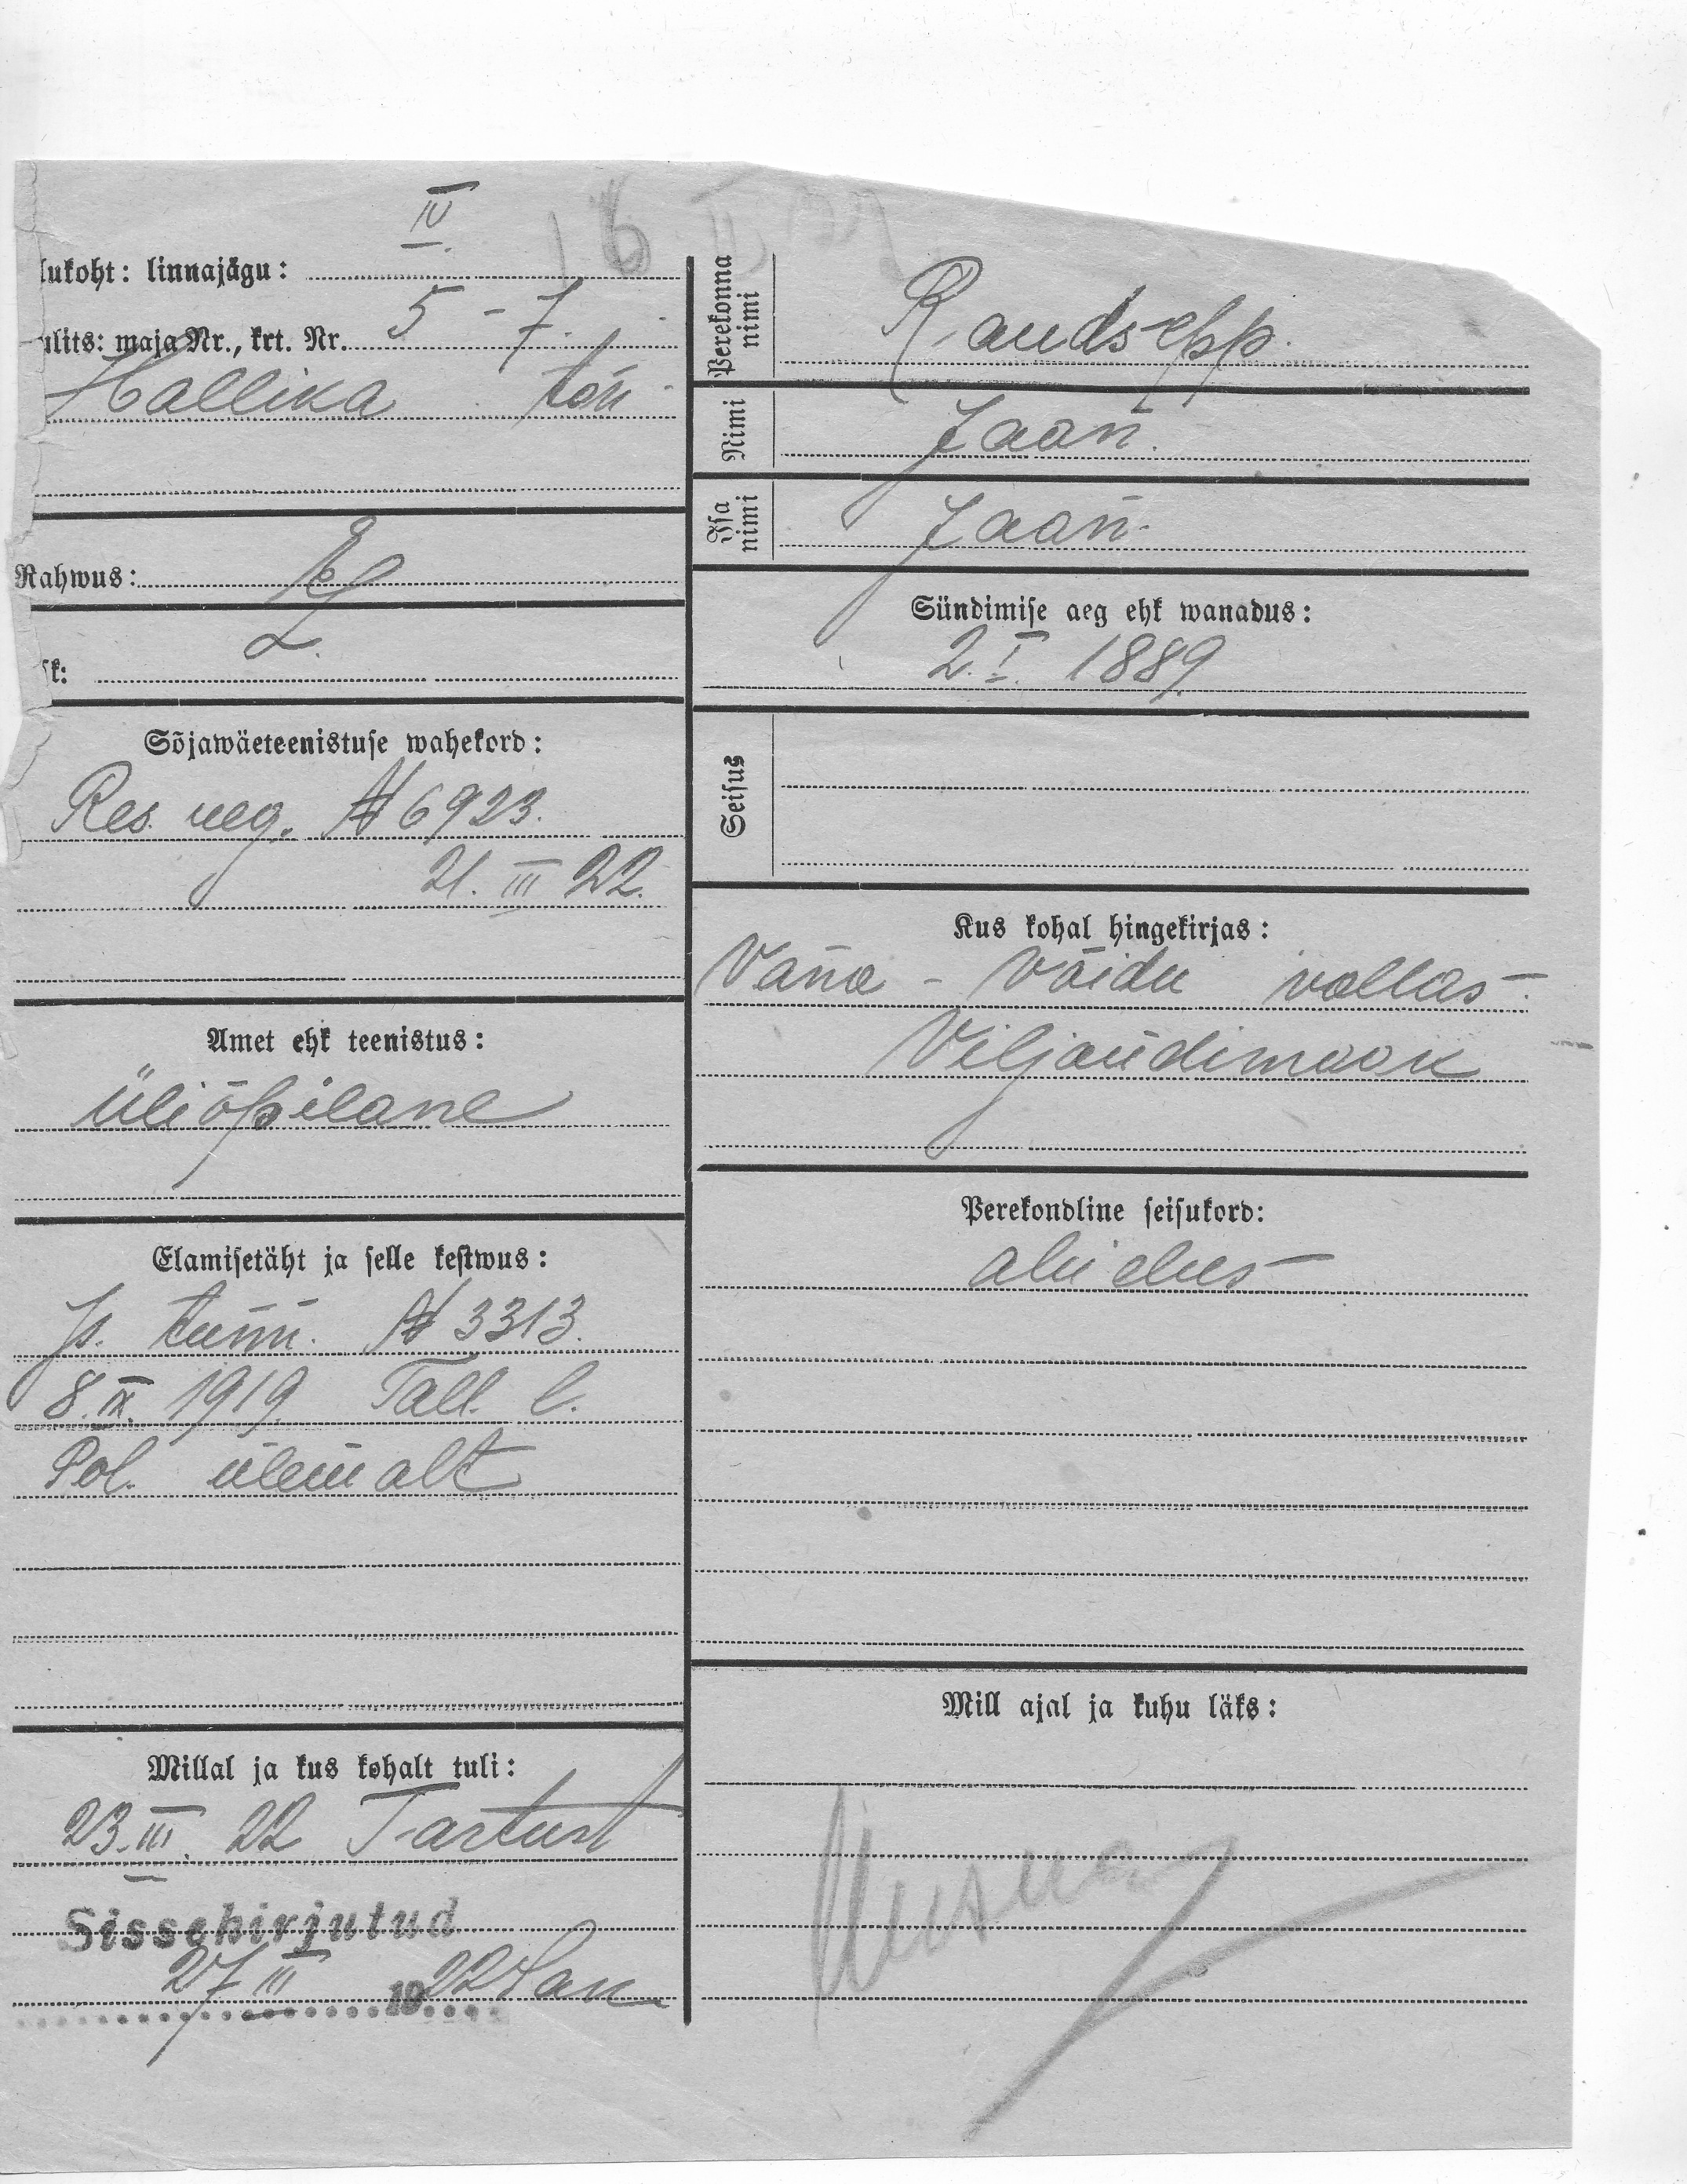 IV
lukoht: linnajagu:
ulits: maja Nr., krt. Nr. 5 - 7.
Hallika tän
Rahwus: E
sk: L.
Sõjawäeteenistuse wahekord:
Res. reg. № 6923.
21. III 22.
Amet ehk teenistus:
üliõpilane
Elamisetäht ja selle kestwus:
Is. tunn. № 3313.
8. IX. 1919. Tall. l.
Pol. ülemalt
Millal ja kus kohalt tuli:
23. III. 22 Tartust
Sissekirjutud
27 III 1922
Perekonna nimi
Raudsepp.
Nimi
Jaan.
Isa nimi
Jaan.
Sündimise aeg ehk wanadus:
2. I. 1889.
Seisus
Kus kohal hingekirjas:
Vana - Võidu vallas
Viljandimaak
Perekondline seisukord:
abielus
Mill ajal ja kuhu läks: